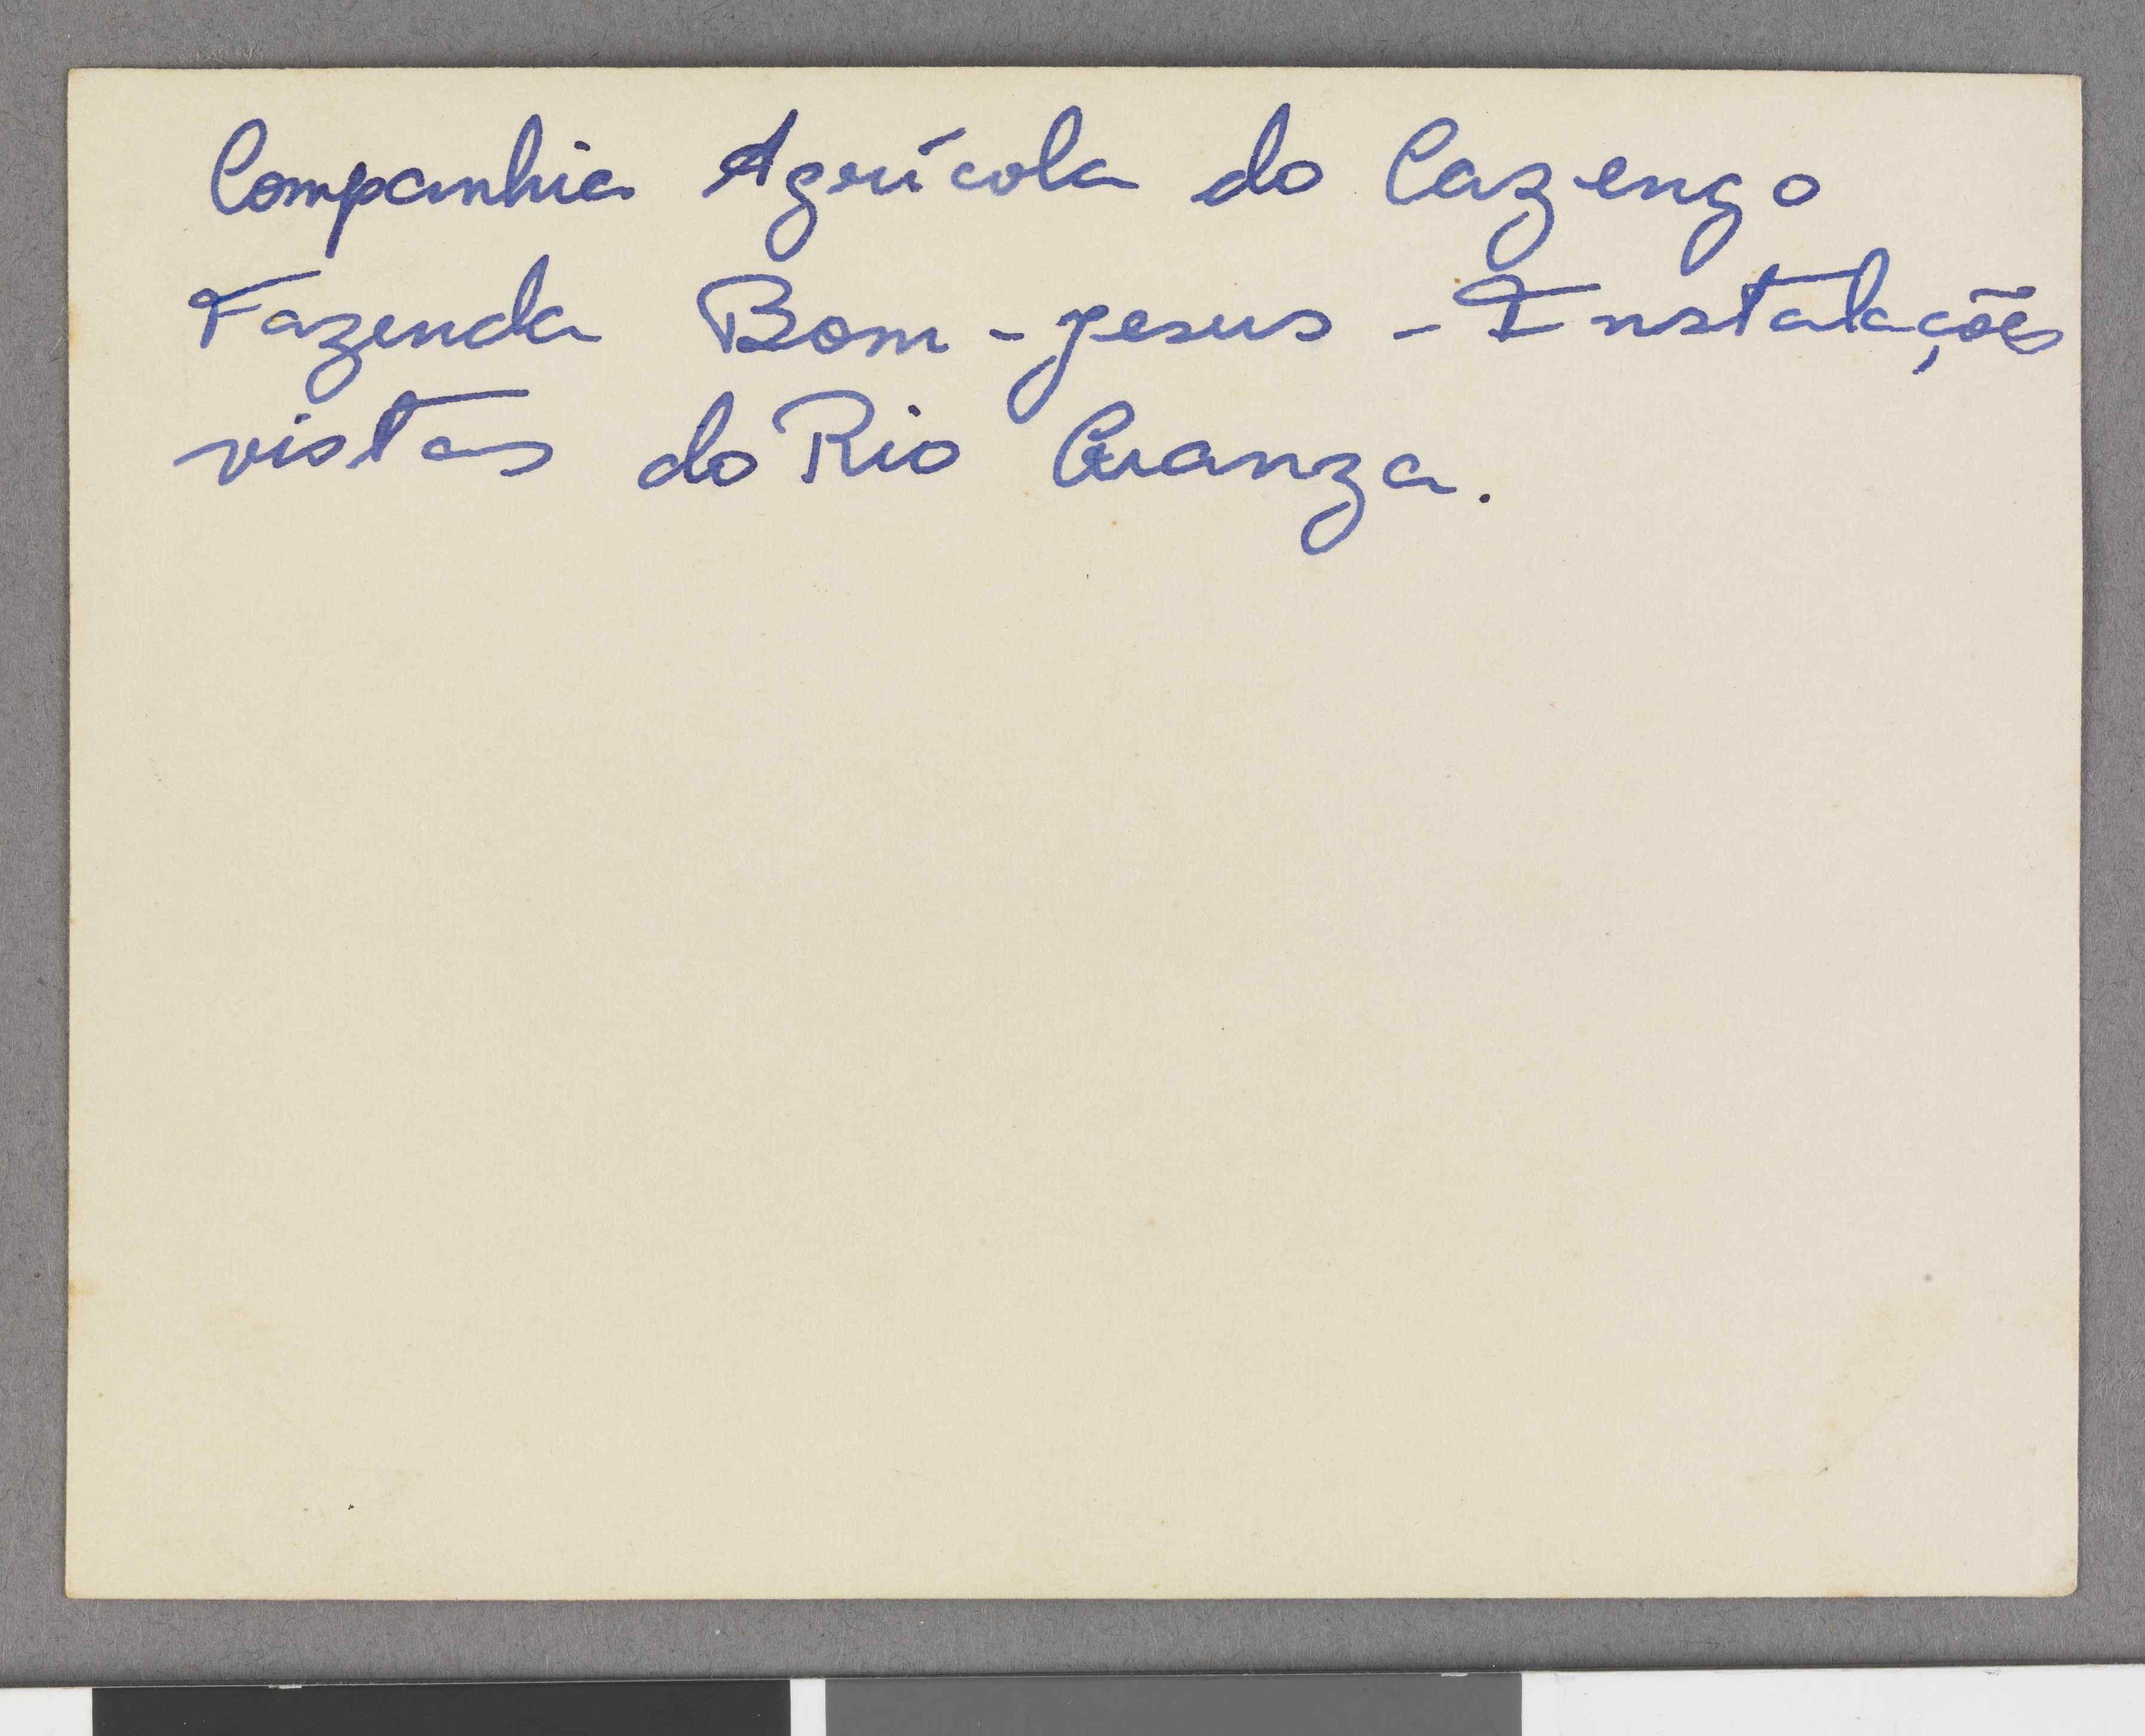 Companhia Agrícola do Cazengo
Fazenda Bom-Jesus - Instalações
vistas do Rio Cuanza.